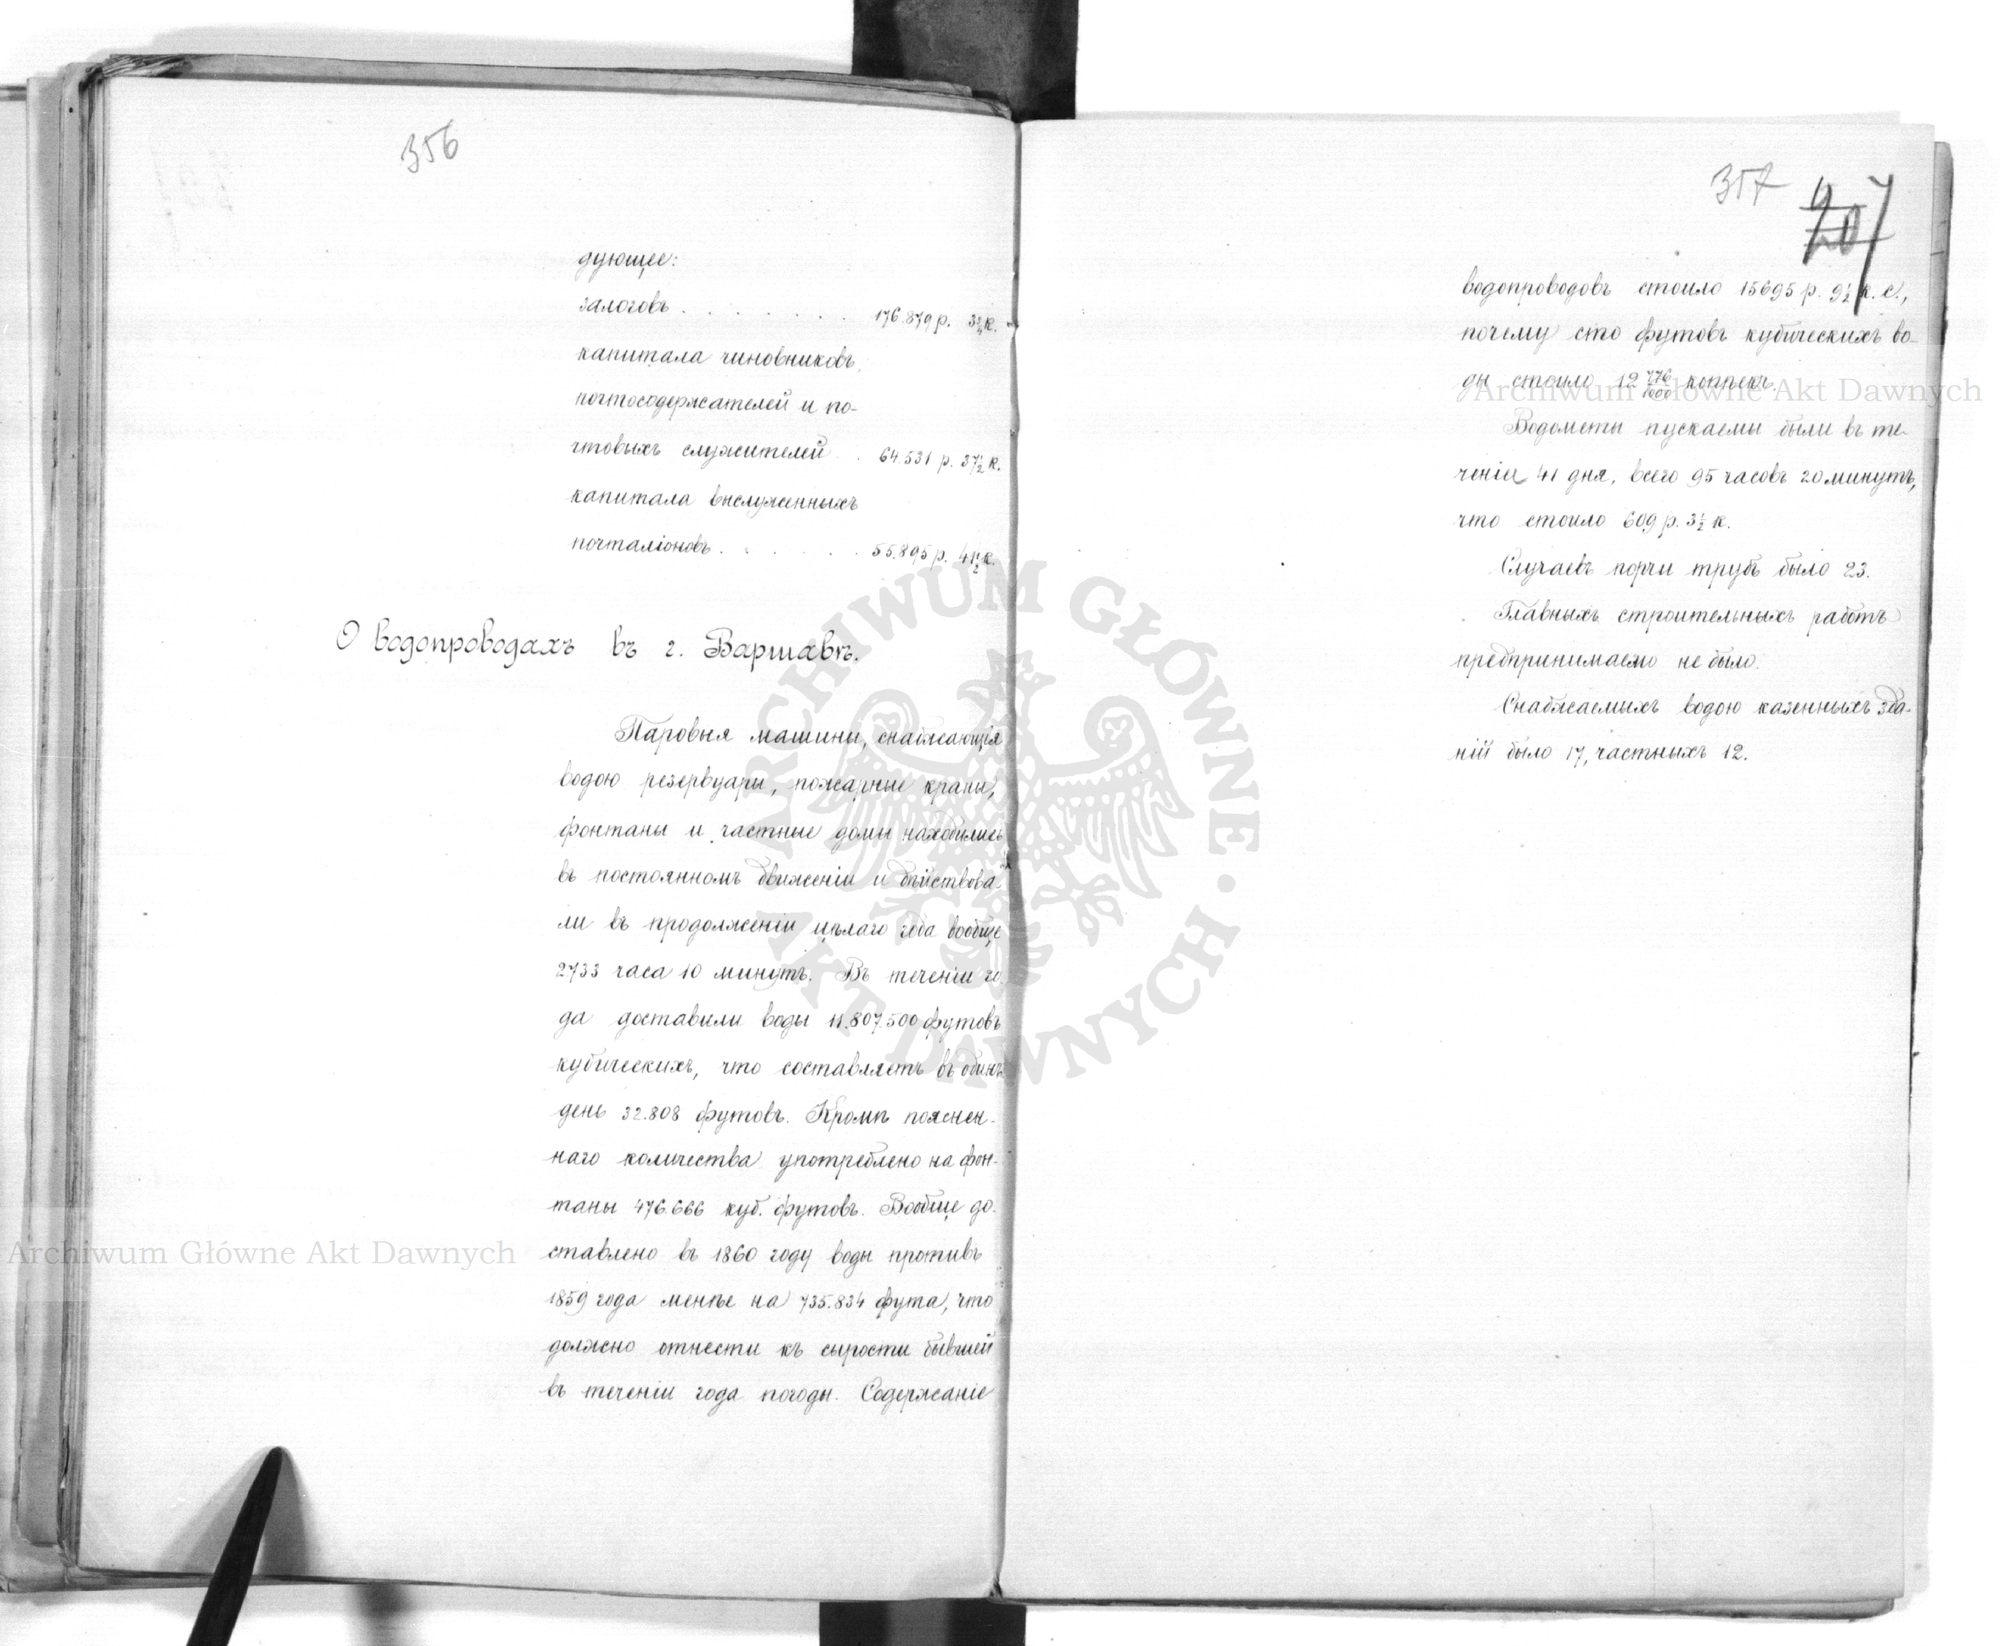 356
дующее:
залоговъ . . . . . . . . 176.879 р. 3¾ к.
капитала чиновниковъ,
почтосодержателей и по-
чтовыхъ служителей . . 64 531 р. 37½ к.
капитала выслуженныхъ
почталіоновъ . . . . . . 55.895 р. 41½ к.
О водопроводахъ въ г. Варшавѣ.
Паровыя машины, снабжающія
водою резервуары, пожарные краны,
фонтаны и частные домы находились
въ постоянномъ движеніи и дѣйствова-
ли въ продолженіи цѣлаго года вообще
2733 часа 10 минутъ. Въ теченіи го-
да доставили воды 11.807.500 футовъ
кубическихъ, что составляетъ въ одинъ
день 32.808 футовъ. Кромѣ пояснен-
наго количества употреблено на фон-
таны 476.666 куб. футовъ. Вообще до-
ставлено въ 1860 году воды противъ
1859 года менѣе на 735.834 фута, что
должно отнести къ сырости бывшей
въ теченіи года погоды. Содержаніе
357 207
водопроводовъ стоило 15695 р. 9½ к. с.,
почему сто футовъ кубическихъ во-
ды стоило 12 776/1000 копѣекъ.
Водометы пускаемы были въ те-
ченіи 41 дня, всего 95 часовъ 20 минутъ,
что стоило 609 р. 3½ к.
Случаевъ порчи трубъ было 23.
Главныхъ строительныхъ работъ
предпринимаемо не было.
Снабжаемыхъ водою казенныхъ зда-
ній было 17, частныхъ 12.
Archiwum Główne Akt Dawnych
Archiwum Główne Akt Dawnych
ARCHIWUM GŁÓWNE · AKT DAWNYCH ·